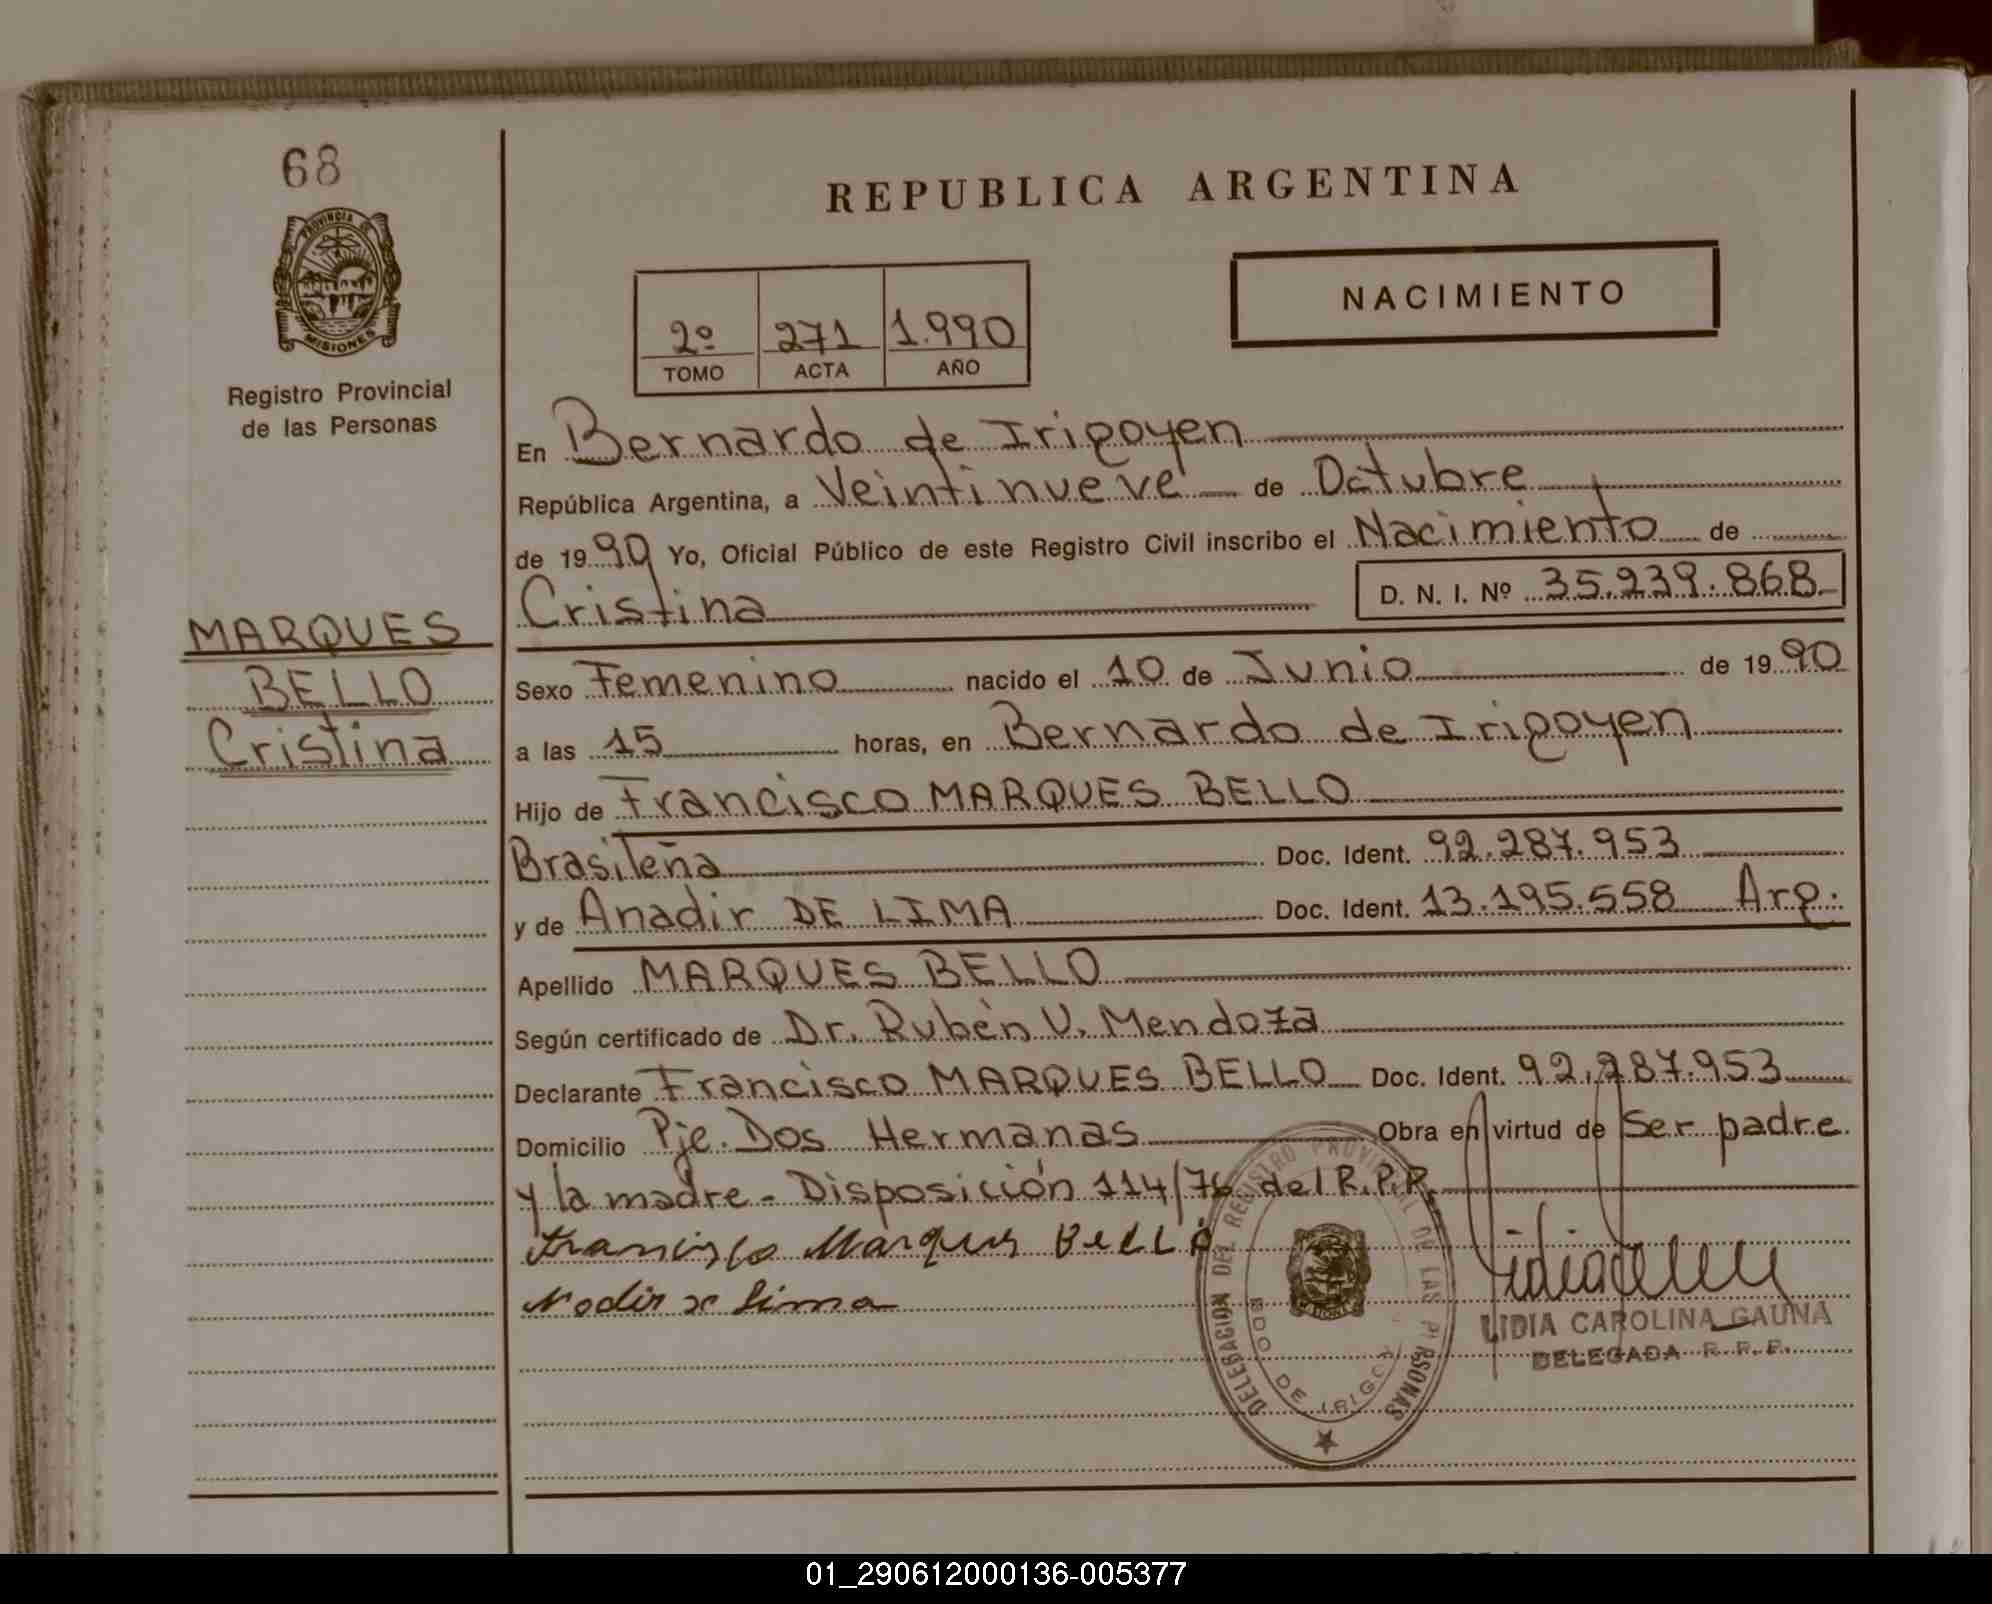 68
PROVINCIA DE
MISIONES
Registro Provincial
de las Personas
MARQUES
BELLO
Cristina
REPUBLICA ARGENTINA
NACIMIENTO
2º 271 1.990
TOMO ACTA AÑO
En Bernardo de Irigoyen
República Argentina, a Veintinueve de Octubre
de 1990 Yo, Oficial Público de este Registro Civil inscribo el Nacimiento de
Cristina D. N. I. Nº 35.239.868
Sexo Femenino nacido el 10 de Junio de 1990
a las 15 horas, en Bernardo de Irigoyen
Hijo de Francisco MARQUES BELLO
Brasileña Doc. Ident. 92.287.953
y de Anadir DE LIMA Doc. Ident. 13.195.558 Arg.
Apellido MARQUES BELLO
Según certificado de Dr. Rubèn V. Mendoza
Declarante Francisco MARQUES BELLO Doc. Ident. 92.287.953
Domicilio Pje. Dos Hermanas Obra en virtud de Ser padre
y la madre - Disposición 114/76 del R.P.P.
Francisco Marques Bello
Nadir x Lima
DELEGACION DEL REGISTRO PROVINCIAL DE LAS PERSONAS
BDO DE IRIGOYEN
LIDIA CAROLINA GAUNA
DELEGADA R. P. P.
01_290612000136-005377